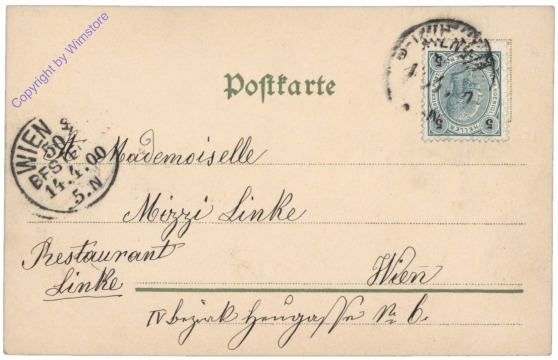 Copyright by Wimstore
Postkarte
5 5
HELLER
WIEN
50
BEST
14.4.00
5.N
A Mademoiselle
Mizzi Linke
Restaurant
Linke
Wien
IV bezirk Heugasse No 6.